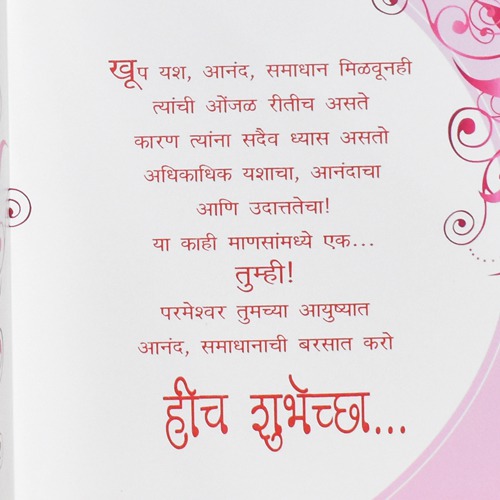 खूप यश, आनंद, समाधान मिळवूनही
त्यांची ओंजळ रीतीच असते
कारण त्यांना सदैव ध्यास असतो
अधिकाधिक यशाचा, आनंदाचा
आणि उदात्ततेचा!
या काही माणसांमध्ये एक...
तुम्ही!
परमेश्वर तुमच्या आयुष्यात
आनंद, समाधानाची बरसात करो
हीच शुभेच्छा...